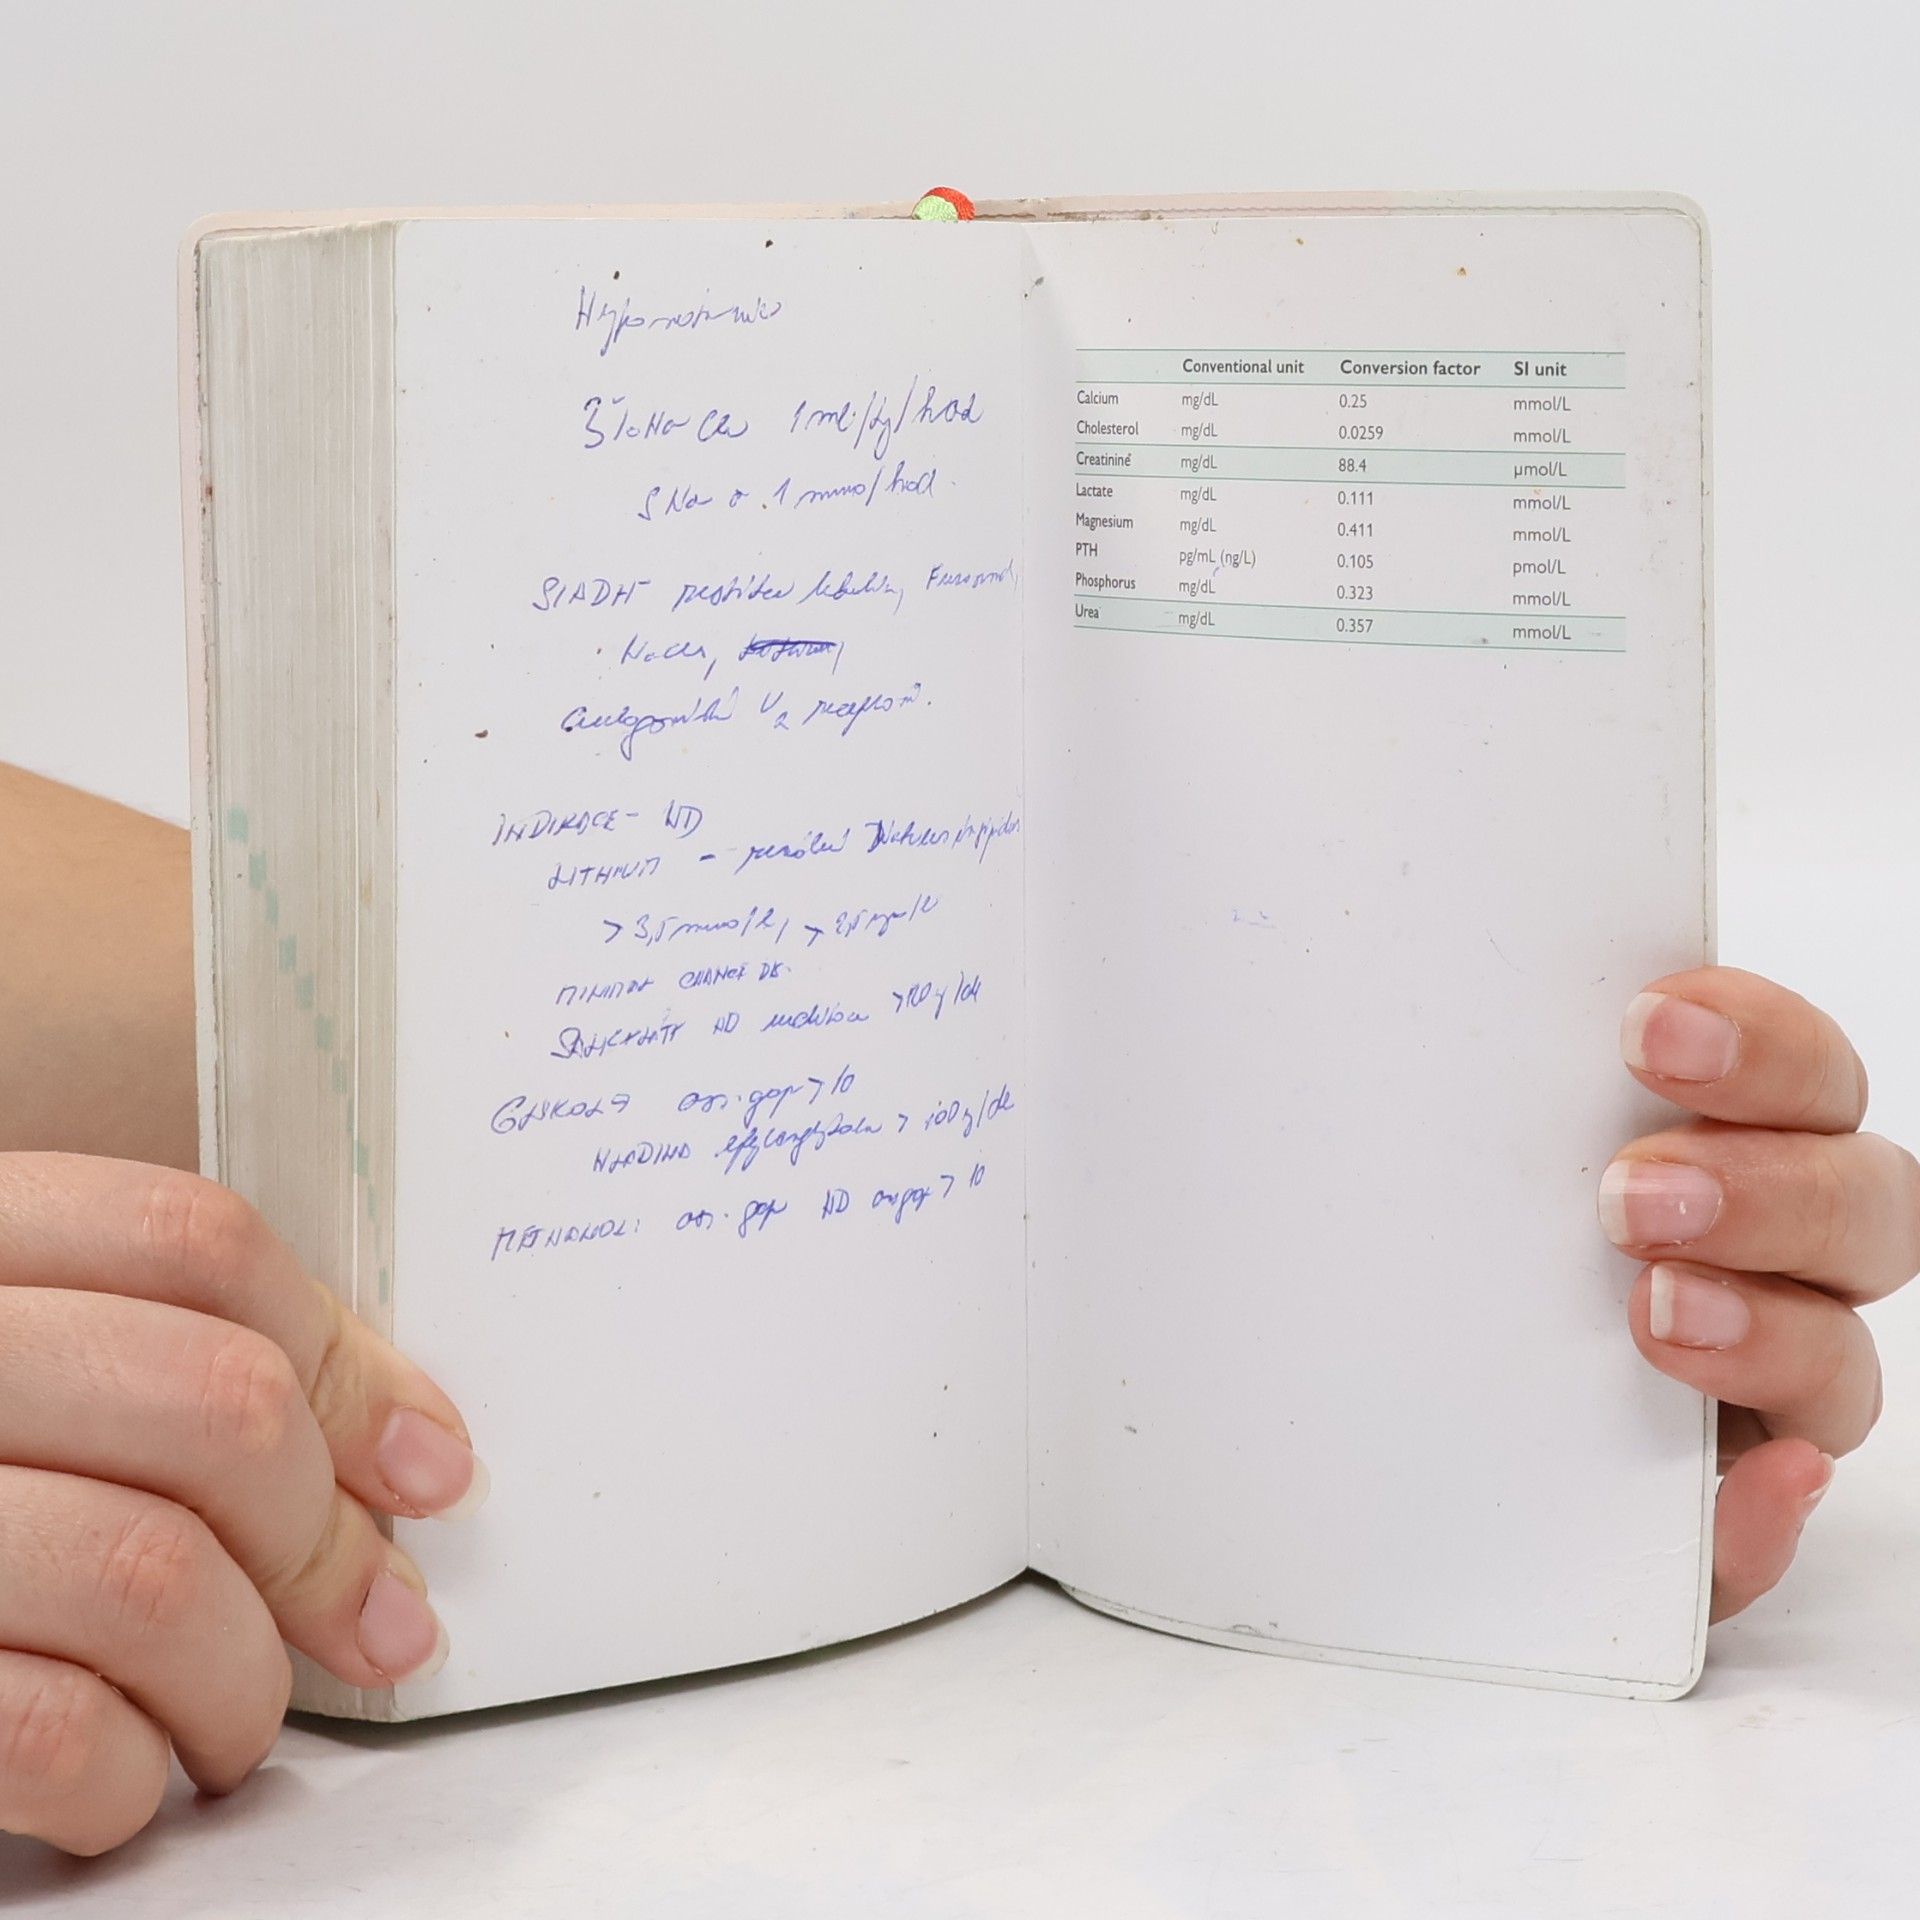 3% NaCl 1 ml/kg/hod
SNa o 1 mmo/hod.
SIADH restrikce tekutin,
NaCl,
V2 receptorů.
INDIKACE - HD
LITHIUM - renální Diabetes insipidus
> 3,5 mmo/l, > 2,5
MINIMAL CHANGE DIS.
SALICYLÁTY HD
GLYKOLY osm. gap > 10
HLADINA > 100
METHANOL: osm. gap HD > 10
Conventional unit Conversion factor SI unit
Calcium mg/dL 0.25 mmol/L
Cholesterol mg/dL 0.0259 mmol/L
Creatinine mg/dL 88.4 µmol/L
Lactate mg/dL 0.111 mmol/L
Magnesium mg/dL 0.411 mmol/L
PTH pg/mL (ng/L) 0.105 pmol/L
Phosphorus mg/dL 0.323 mmol/L
Urea mg/dL 0.357 mmol/L